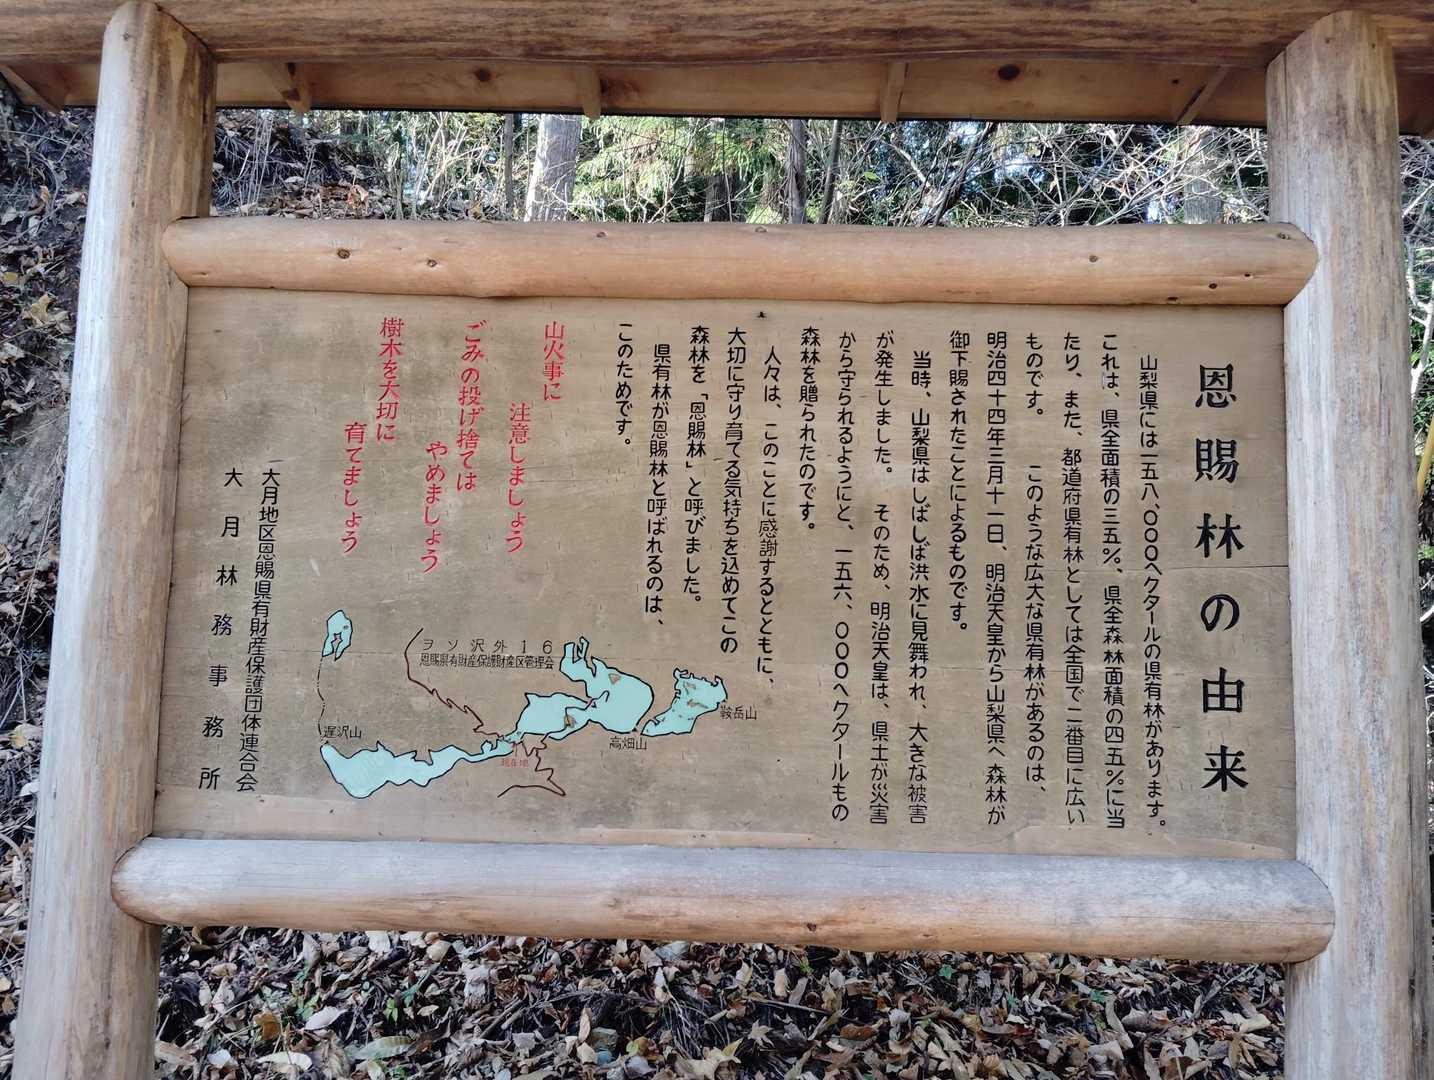 恩賜林の由来
山梨県には一五八、〇〇〇ヘクタールの県有林があります。
これは、県全面積の三五%、県全森林面積の四五%に当
たり、また、都道府県有林としては全国で二番目に広い
ものです。 このような広大な県有林があるのは、
明治四十四年三月十一日、明治天皇から山梨県へ森林が
御下賜されたことによるものです。
当時、山梨県はしばしば洪水に見舞われ、大きな被害
が発生しました。 そのため、明治天皇は、県土が災害
から守られるようにと、一五六、〇〇〇ヘクタールもの
森林を贈られたのです。
人々は、このことに感謝するとともに、
大切に守り育てる気持ちを込めてこの
森林を「恩賜林」と呼びました。
県有林が恩賜林と呼ばれるのは、
このためです。
山火事に
注意しましょう
ごみの投げ捨ては
やめましょう
樹木を大切に
育てましょう
大月地区恩賜県有財産保護団体連合会
大月林務事務所
ヲソ沢外16
恩賜県有財産保護財産区管理会
鞍岳山
高畑山
遅沢山
現在地